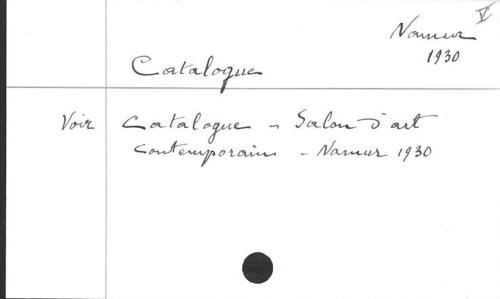 V
Namur
1930
Catalogue
Voir Catalogue - Salon d'art
contemporain - Namur 1930